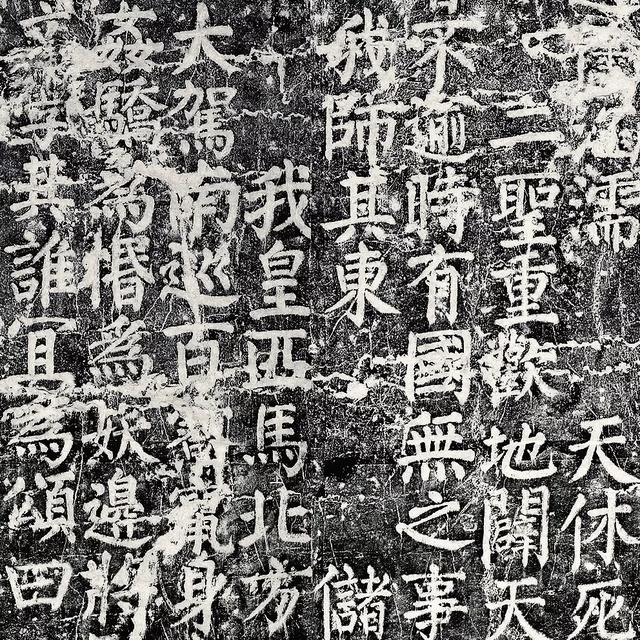 學其誰宜為頌曰
姦驕為惛為妖邊將
大駕南巡百寮竄身
我皇匹馬北方
我師其東儲
不逾時有國無之事
二聖重歡地闢天
涵濡天休死